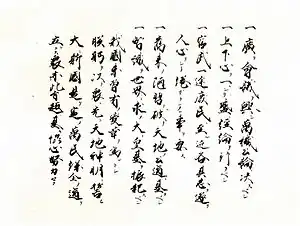 一廣ク會議ヲ興シ萬機公論ニ決スヘシ
一上下心ヲ一ニシテ盛ニ經綸ヲ行フヘシ
一官武一途庶民ニ至ル迄各其志ヲ遂ケ
人心ヲシテ倦マサラシメン事ヲ要ス
一舊來ノ陋習ヲ破リ天地ノ公道ニ基クヘシ
一智識ヲ世界ニ求メ大ニ皇基ヲ振起スヘシ
我國未曾有ノ變革ヲ爲ントシ
朕躬ヲ以テ衆ニ先シ天地神明ニ誓ヒ
大ニ斯國是ヲ定メ萬民保全ノ道ヲ
立ントス衆亦此旨趣ニ基キ協心努力セヨ